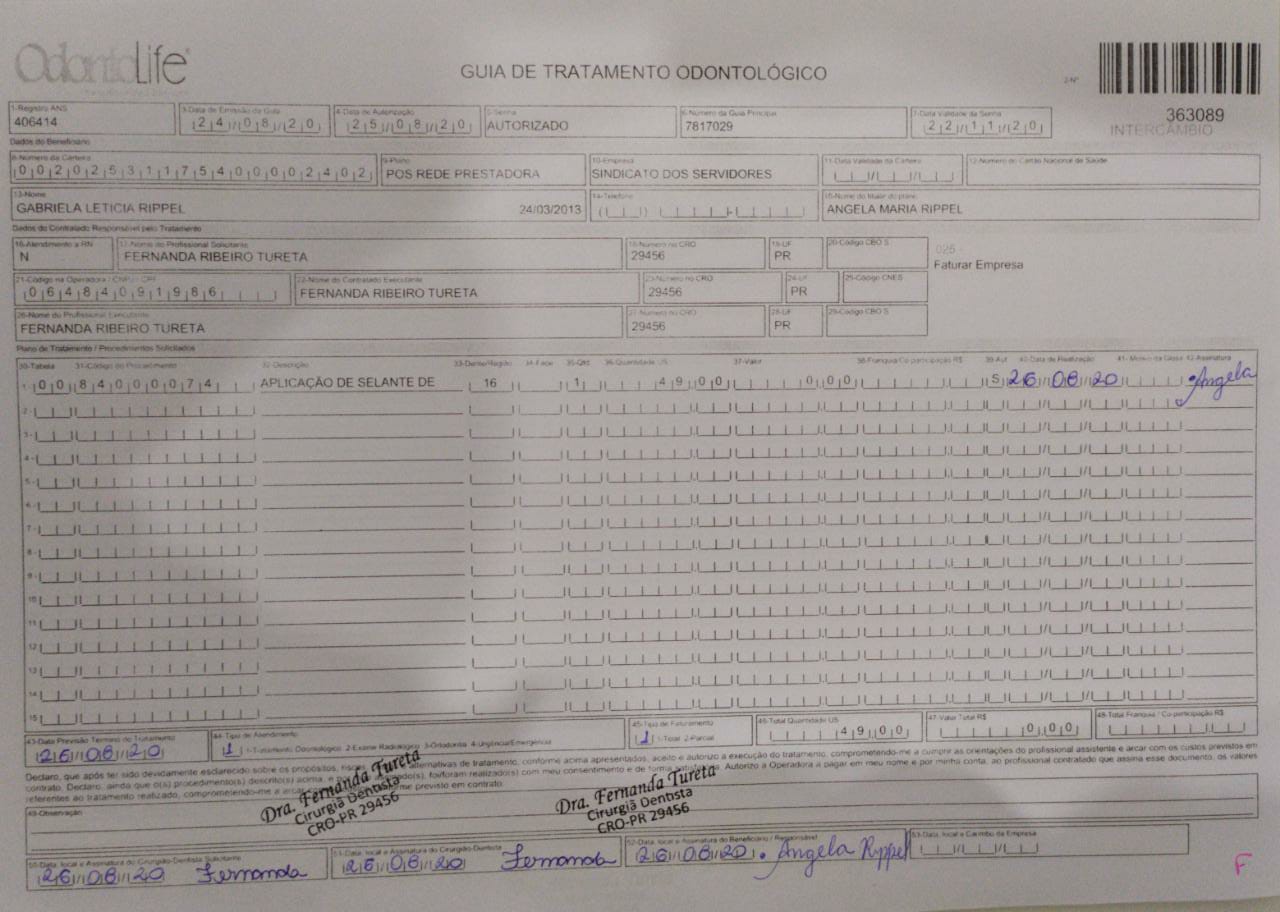 OdontoLife
GUIA DE TRATAMENTO ODONTOLÓGICO
2-Nº
363089
INTERCÂMBIO
1-Registro ANS
406414
3-Data de Emissão da Guia
24/08/20
4-Data de Autorização
25/08/20
5-Senha
AUTORIZADO
6-Número da Guia Principal
7817029
7-Data Validade da Senha
22/11/20
Dados do Beneficiário
8-Número da Carteira
00202531175400002402
9-Plano
POS REDE PRESTADORA
10-Empresa
SINDICATO DOS SERVIDORES
11-Data Validade da Carteira
12-Número do Cartão Nacional de Saúde
13-Nome
GABRIELA LETICIA RIPPEL 24/03/2013
14-Telefone
15-Nome do titular do plano
ANGELA MARIA RIPPEL
Dados do Contratado Responsável pelo Tratamento
16-Atendimento a RN
N
17-Nome do Profissional Solicitante
FERNANDA RIBEIRO TURETA
18-Número no CRO
29456
19-UF
PR
20-Código CBO S
025 -
Faturar Empresa
21-Código na Operadora / CNPJ / CPF
06484091986
22-Nome do Contratado Executante
FERNANDA RIBEIRO TURETA
23-Número no CRO
29456
24-UF
PR
25-Código CNES
26-Nome do Profissional Executante
FERNANDA RIBEIRO TURETA
27-Número no CRO
29456
28-UF
PR
29-Código CBO S
Plano de Tratamento / Procedimentos Solicitados
30-Tabela 31-Código do Procedimento 32-Descrição 33-Dente/Região 34-Face 35-Qtd 36-Quantidade US 37-Valor 38-Franquia/Co-participação R$ 39-Aut 40-Data de Realização 41-Motivo da Glosa 42-Assinatura
1- 00 84000074 APLICAÇÃO DE SELANTE DE 16 1 49,00 0,00 S 26/08/20 Angela
2-
3-
4-
5-
6-
7-
8-
9-
10
11
12
13
14
15
43-Data Previsão Término do Tratamento
26/08/20
44-Tipo de Atendimento
1 1-Tratamento Odontológico 2-Exame Radiológico 3-Ortodontia 4-Urgência/Emergência
45-Tipo de Faturamento
1 1-Total 2-Parcial
46-Total Quantidade US
49,00
47-Valor Total R$
0,00
48-Total Franquia / Co-participação R$
Declaro, que após ter sido devidamente esclarecido sobre os propósitos, riscos, alternativas de tratamento, conforme acima apresentados, aceito e autorizo a execução do tratamento, comprometendo-me a cumprir as orientações do profissional assistente e arcar com os custos previstos em
contrato. Declaro, ainda que o(s) procedimento(s) descrito(s) acima, e foi/foram realizado(s) com meu consentimento e de forma satisfatória. Autorizo a Operadora a pagar em meu nome e por minha conta, ao profissional contratado que assina esse documento, os valores
referentes ao tratamento realizado, comprometendo-me a arcar previsto em contrato.
49-Observação
Dra. Fernanda Tureta
Cirurgiã Dentista
CRO-PR 29456
Dra. Fernanda Tureta
Cirurgiã Dentista
CRO-PR 29456
50-Data, local e Assinatura do Cirurgião-Dentista Solicitante
26/08/20 Fernanda
51-Data, local e Assinatura do Cirurgião-Dentista
26/08/20 Fernanda
52-Data, local e Assinatura do Beneficiário / Responsável
26/08/20. Angela Rippel
53-Data, local e Carimbo da Empresa
F